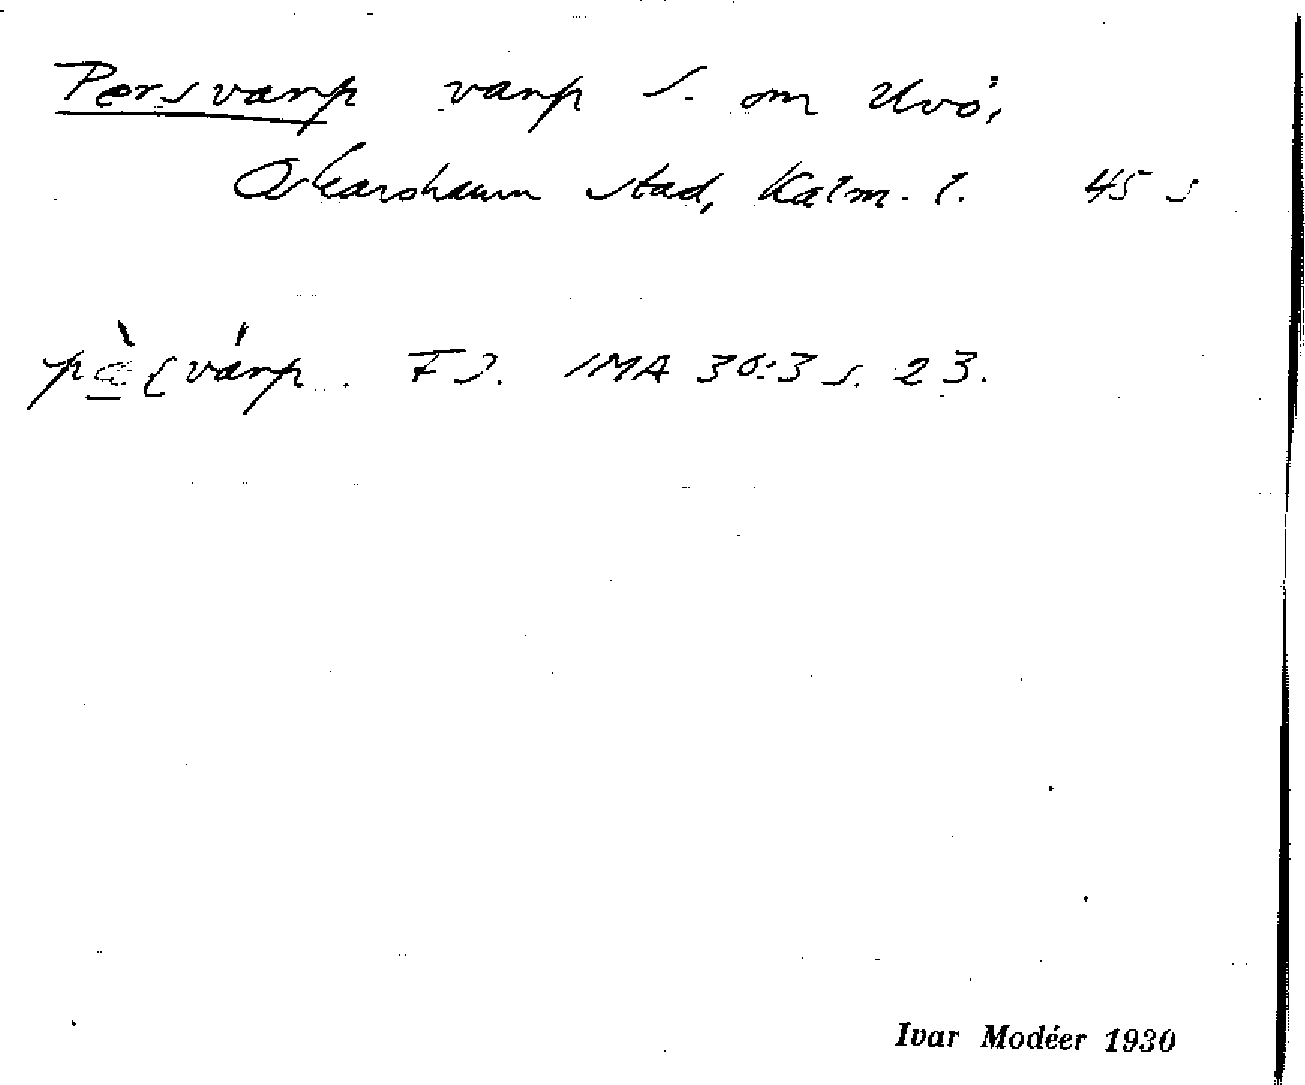 Persvarp varp S. om Uvö,
Oskarshamn stad, Kalm. l. 45 s
varp. FJ. IMA 30:3 s. 23.
Ivar Modéer 1930